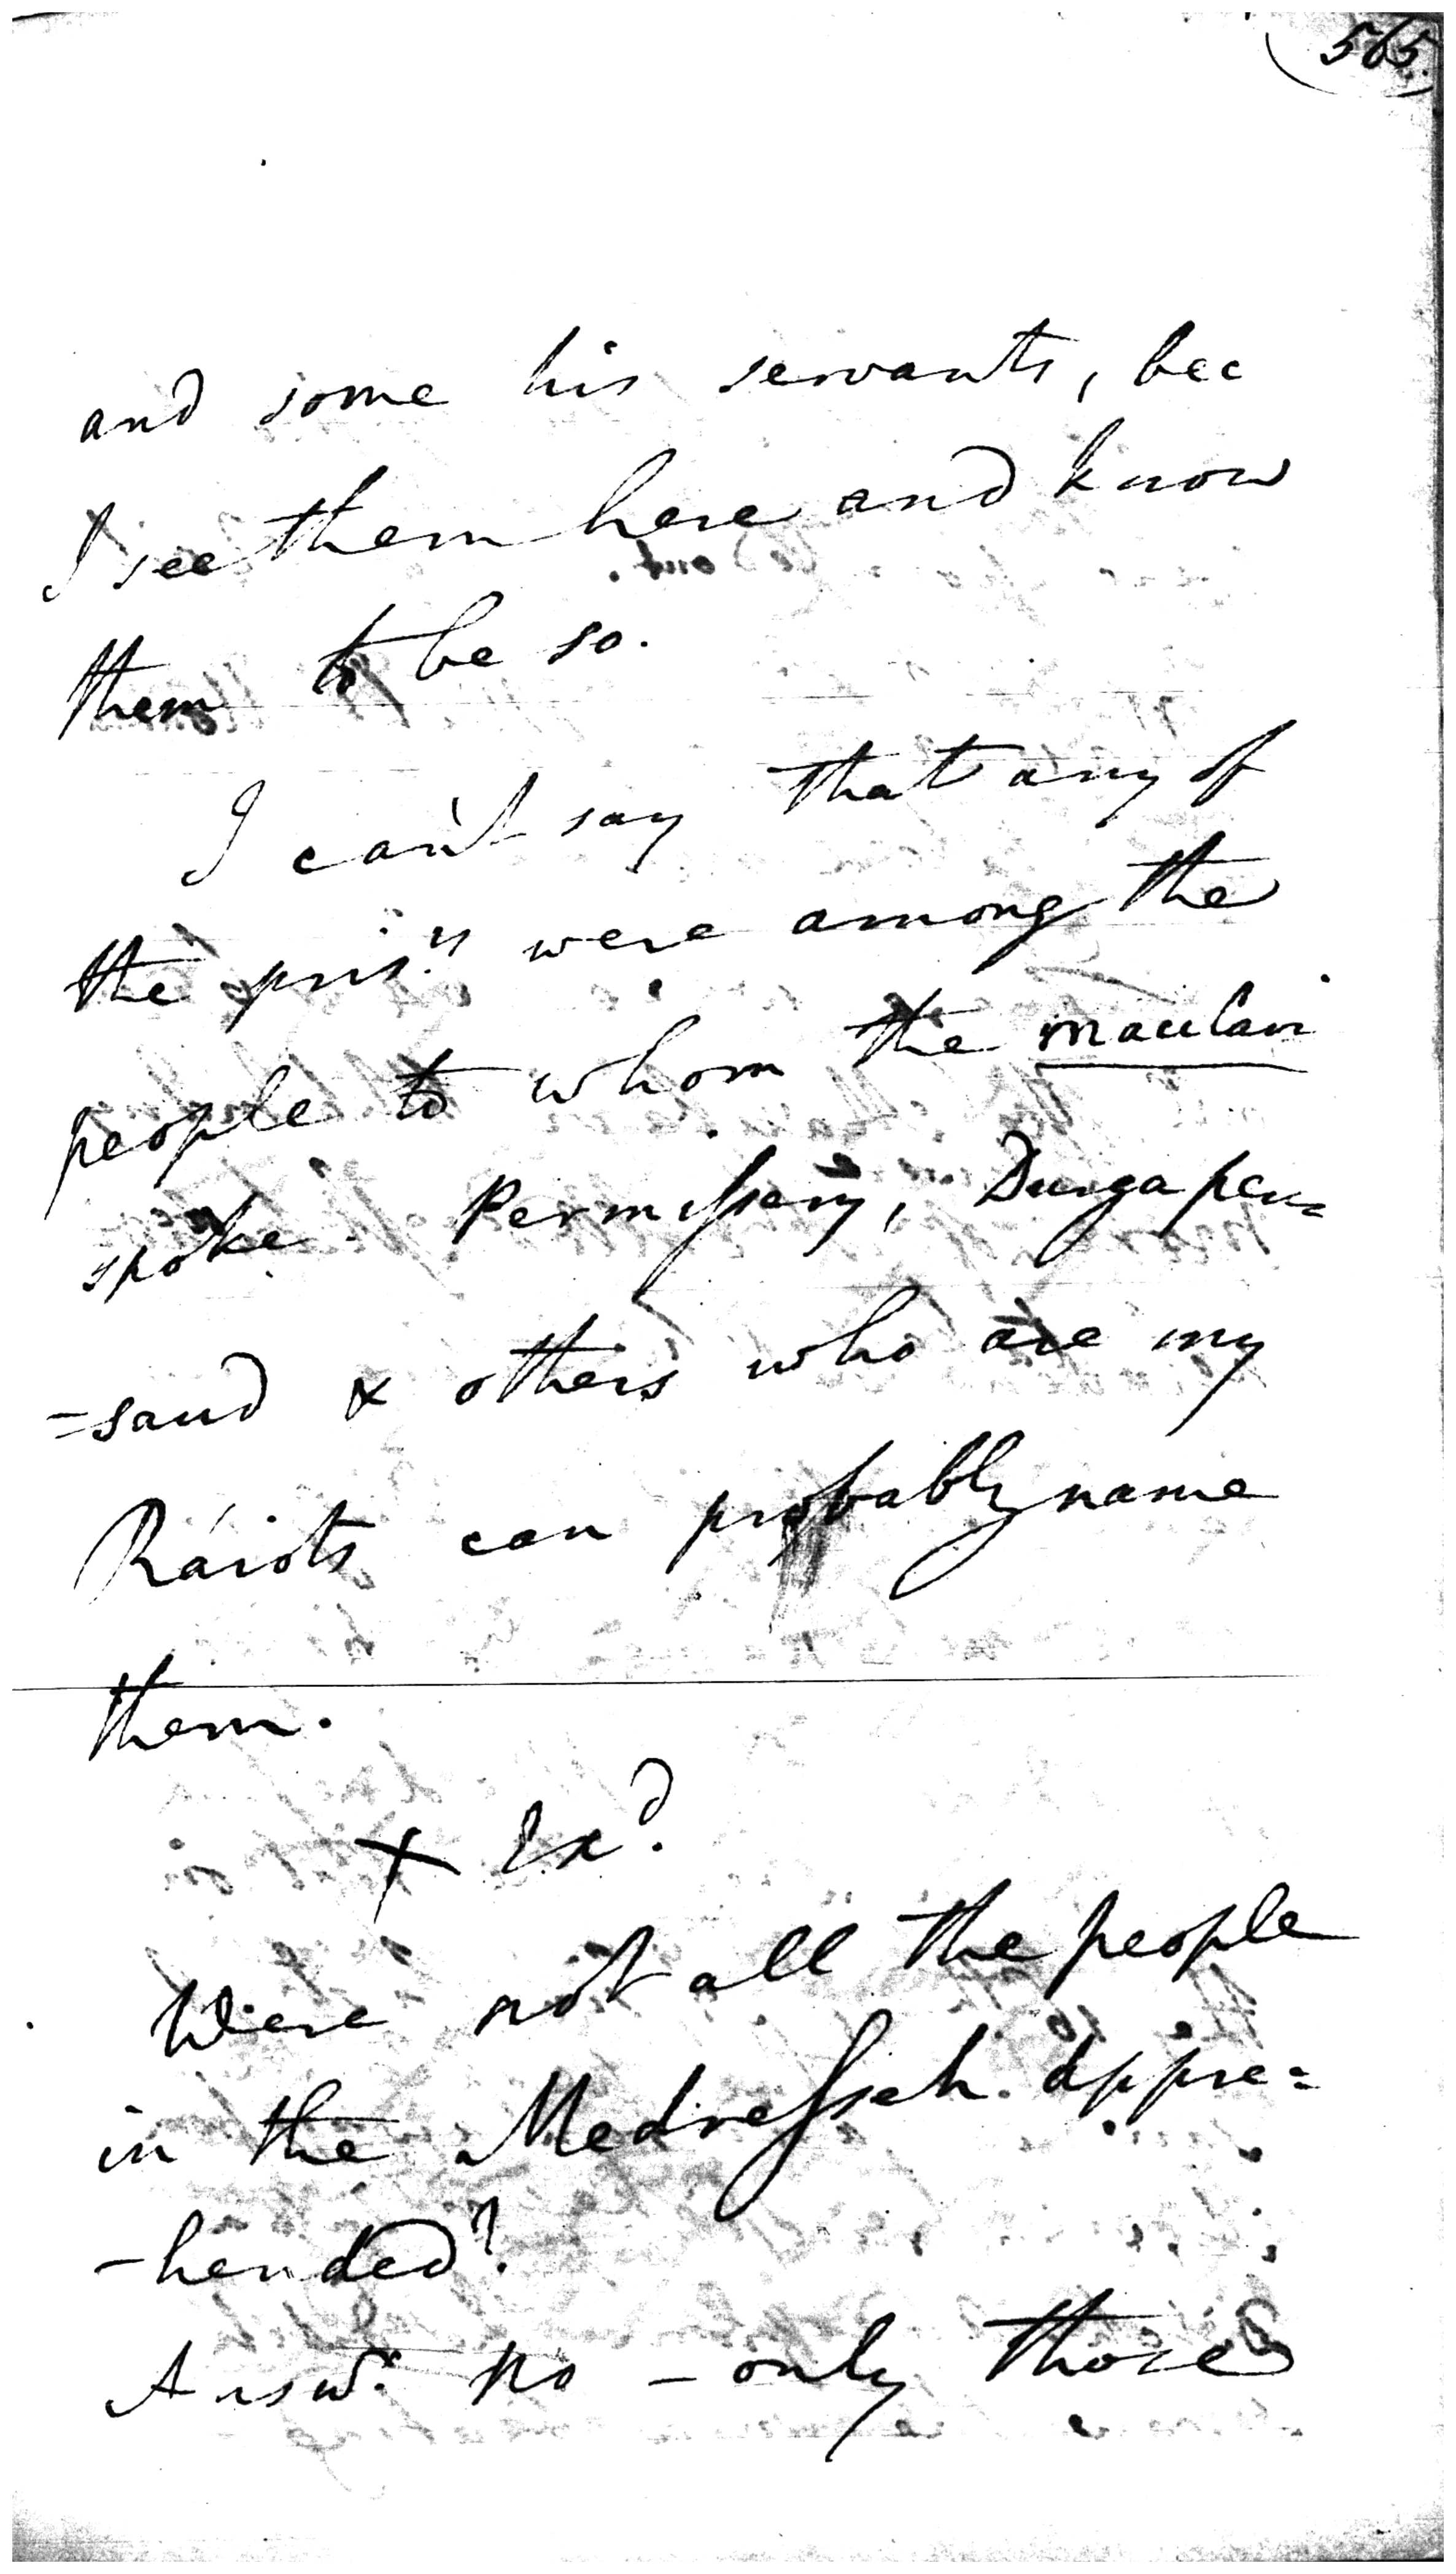 565.
and some his servants, bec
I see them here and know
them to be so.
I can't say that any of
the pris.rs were among the
people to whom the maulavi
spoke. Permissery, Durgaper=
=saud & others who are my
Ráiots can probably name
them.
X Exd.
Were not all the people
in the Medresseh appre=
-hended?
Answr. No – only those